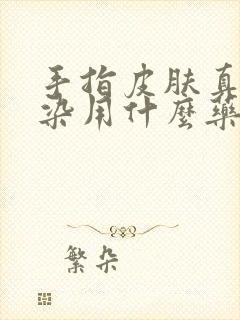 手指皮肤真
染用什麼藥
繁朵